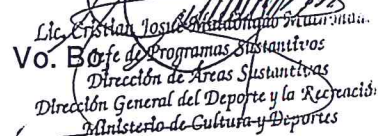 Lic. Cristian Josué
Vo. Bo.
Jefe de Programas Sustantivos
Dirección de Áreas Sustantivas
Dirección General del Deporte y la Recreación
Ministerio de Cultura y Deportes